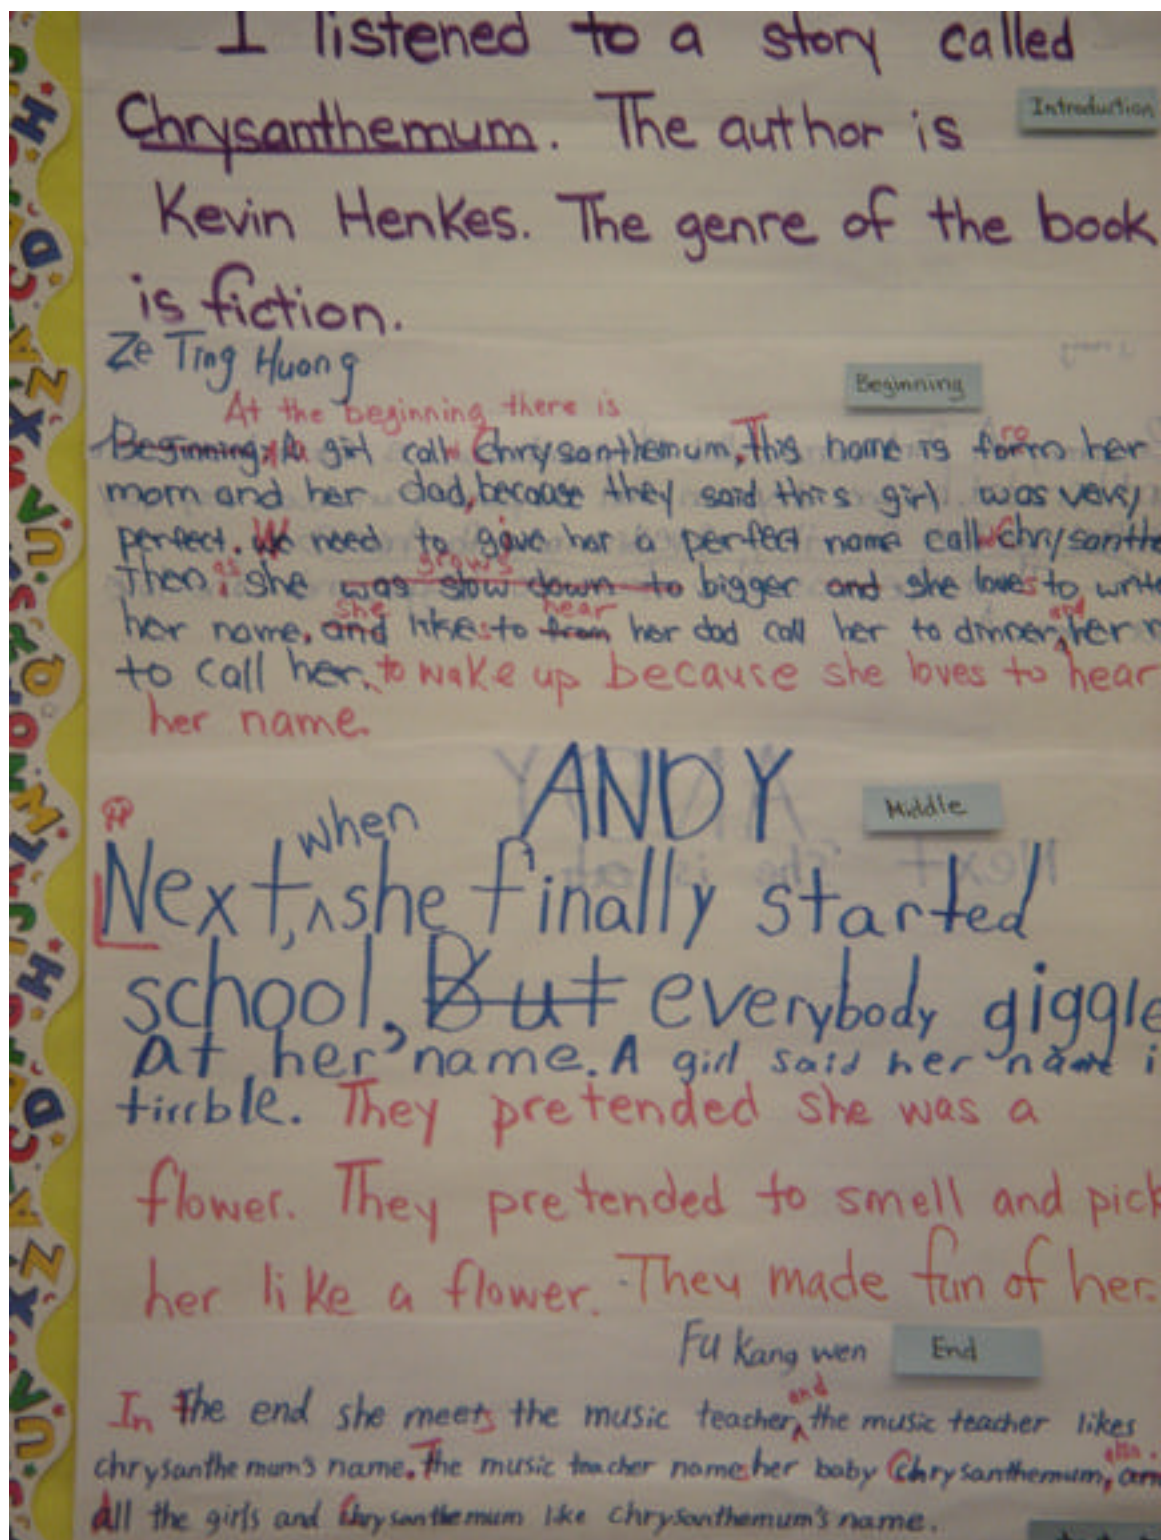 I listened to a story called
Introduction
Chrysanthemum. The author is
Kevin Henkes. The genre of the book
is fiction.
Ze Ting Huang
Beginning
At the beginning there is
Beginning: A girl call Chrysanthemum, This name is from her
mom and her dad, because they said this girl was very
perfect. We need to give her a perfect name call Chrysanthe
grows
Then as she was slow down to bigger and she loves to write
she hear and
her name, and likes to from her dad call her to dinner, her m
to call her, to wake up because she loves to hear
her name.
ANDY
Middle
when
Next, ^ she finally started
school, But everybody giggle
At her name. A girl said her name i
tirrble. They pretended she was a
flower. They pretended to smell and pick
her like a flower. They made fun of her.
Fu Kang wen
End
and
In the end she meets the music teacher, ^ the music teacher likes
chrysanthemum's name. The music teacher names her baby Chrysanthemum,
All the girls and Chrysanthemum like chrysanthemum's name.